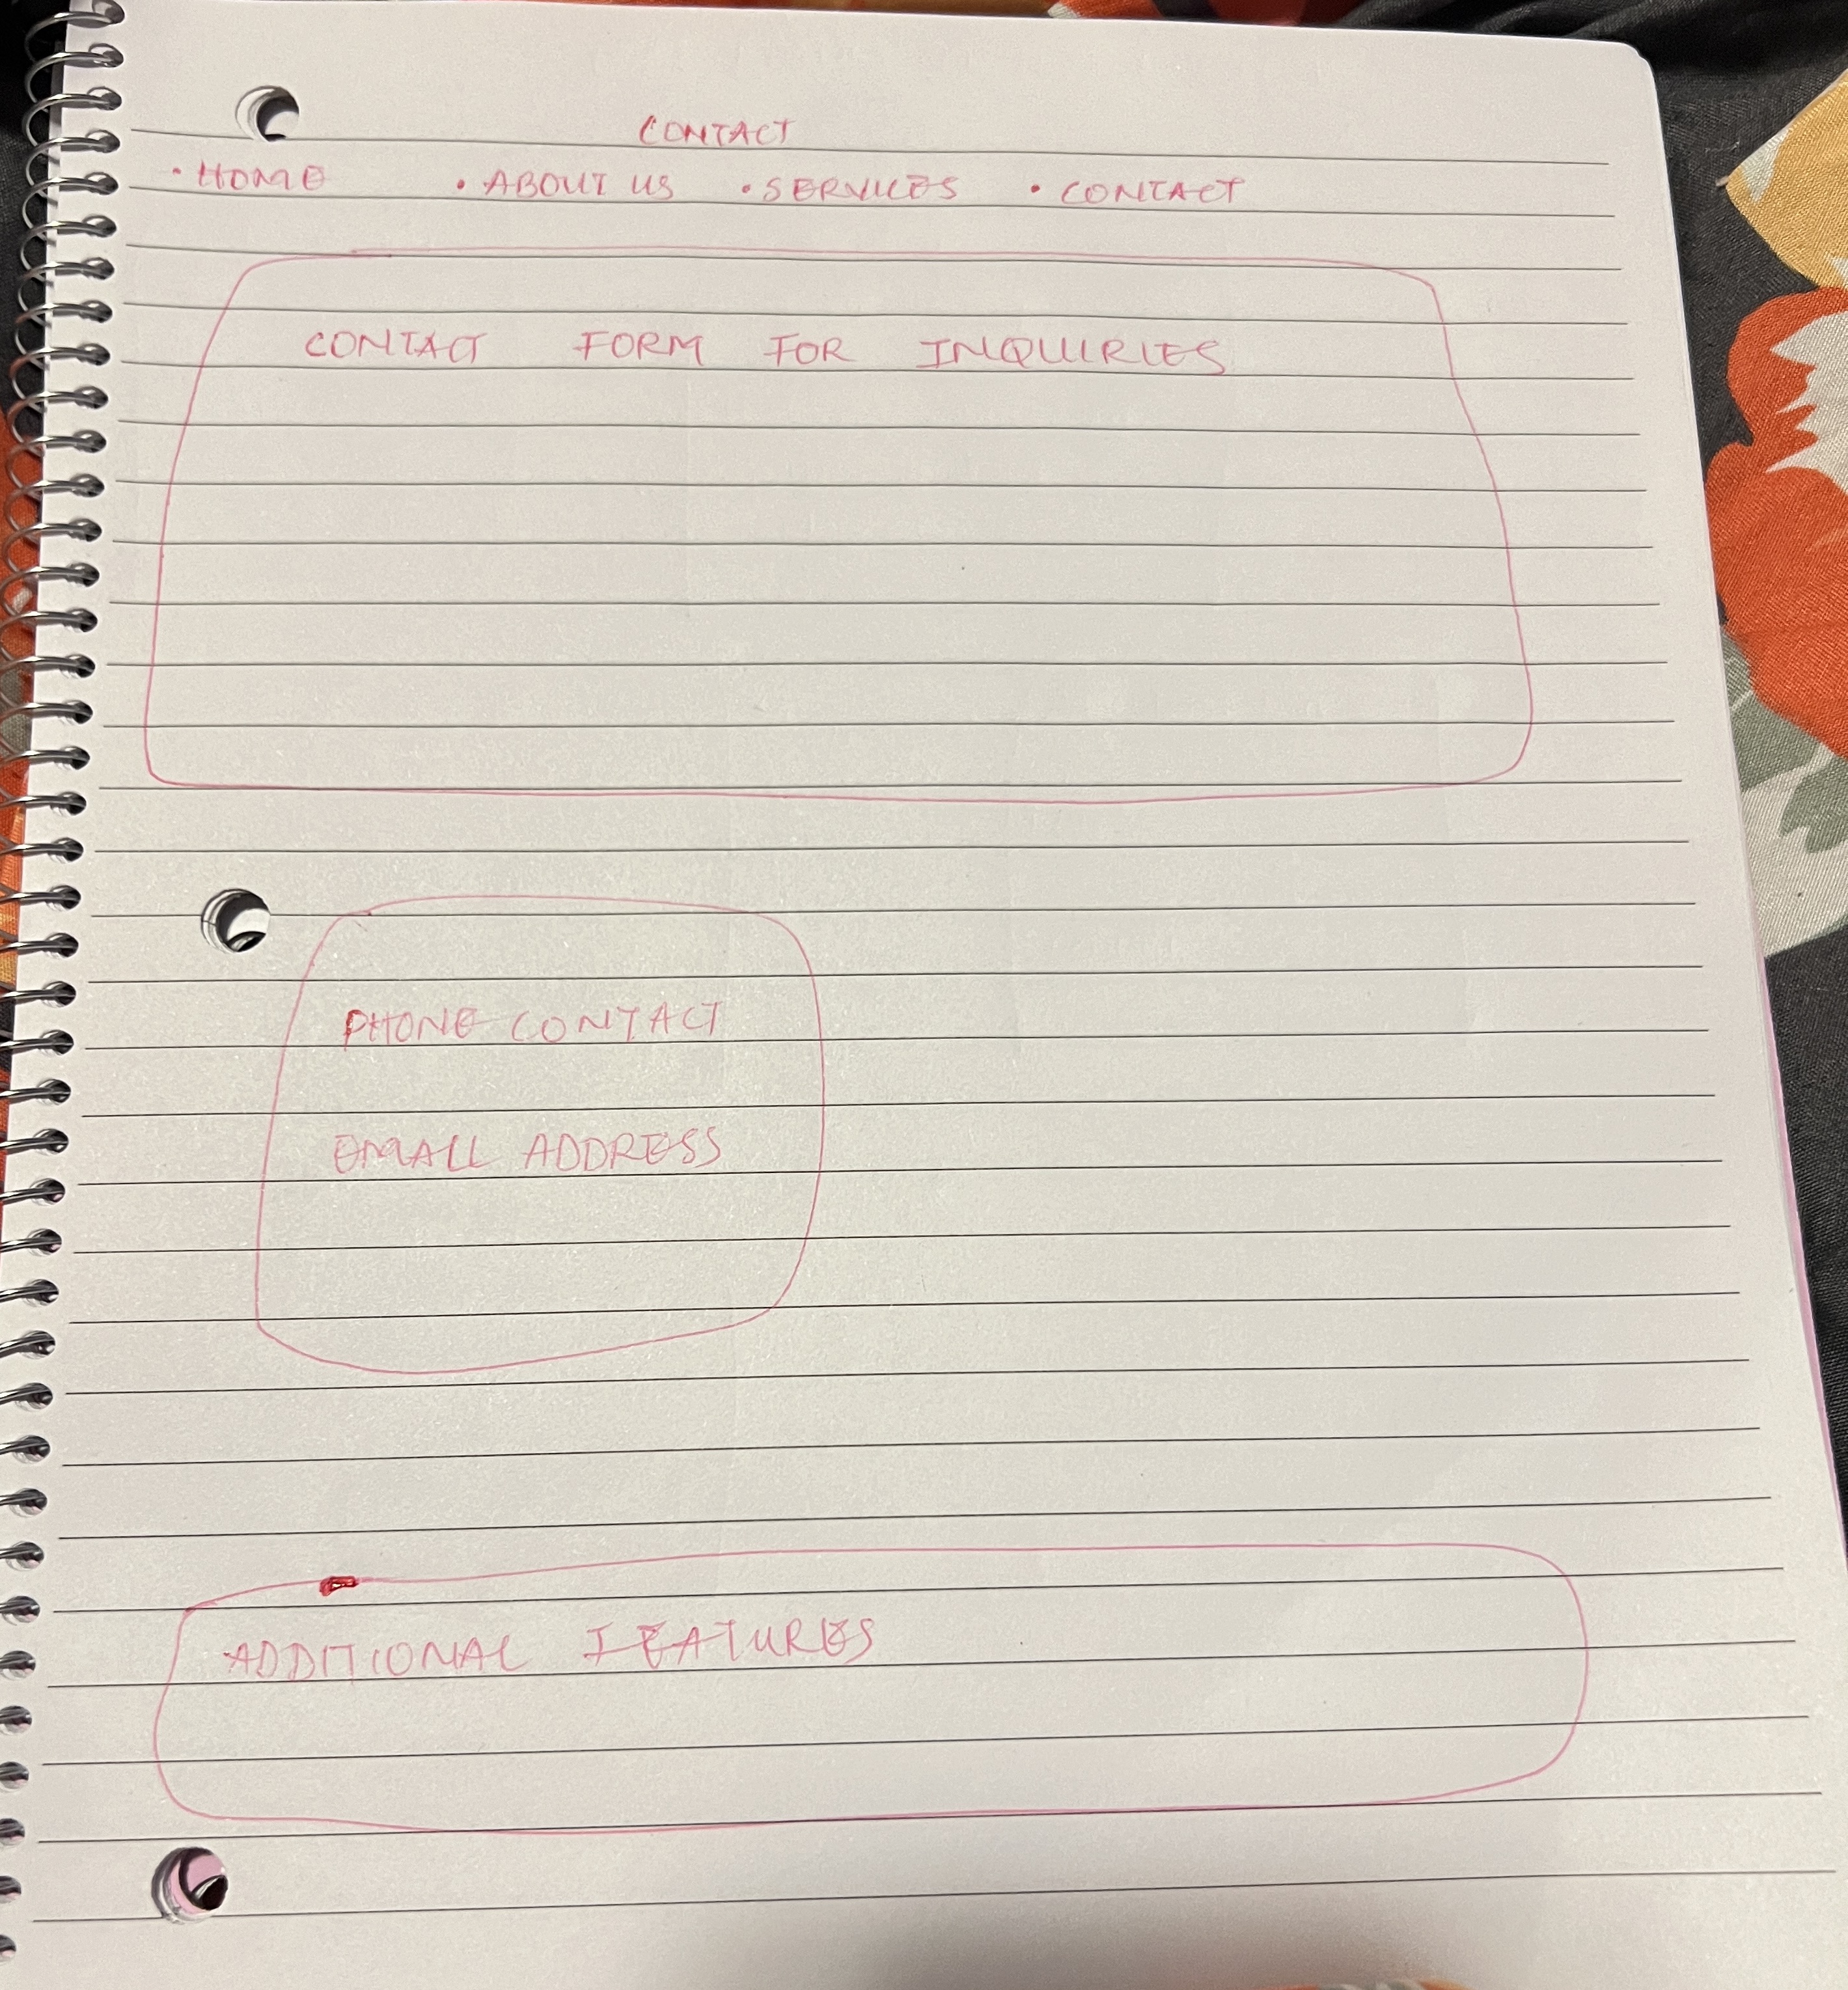 CONTACT
• HOME • ABOUT US • SERVICES • CONTACT
CONTACT FORM FOR INQUIRIES
PHONE CONTACT
EMAIL ADDRESS
ADDITIONAL FEATURES